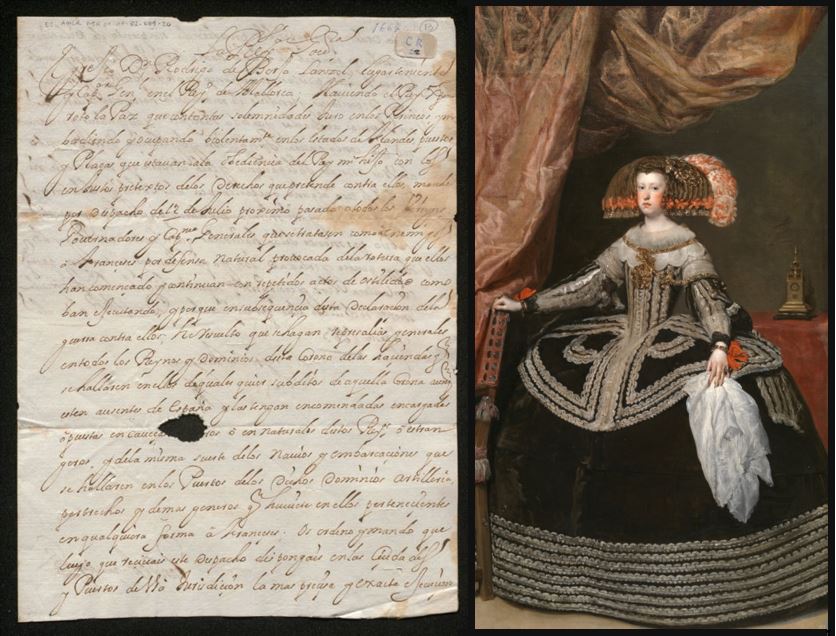 1667
13
CR
La Reyna Gov.ra
Illre. Dn. Rodrigo de Borja Lanzol, lugarteniente
y Capn. Genl. en el Rey.no de Mallorca haviendo el Rey
roto la Paz que con tantas solemnidades Juro en los Pirineos, ym
badiendo y ocupando violentamte. en los estados de Flandes, puestos
y Plaças que estavan a la obediencia del Rey mi hijo con los
injustos pretextos delos Derechos que pretende contra ellos, mande
por despacho de 12 de Julio proximo pasado a todos los
Governadores y Capnes. Generales que tratasen como a enemigos
a Franceses por defensa natural provocada dela rotura que ellos
han començado y continuan con repetidos actos de ostilidad como
ban executando, y porque en subsequencia desta Declaracion de la
guerra contra ellos, He resuelto que se hagan represalias generales
en todos los Reynos y Dominios desta Corona delas haciendas q
se hallaren en ellos de quales quier subditos de aquella Corona aunq
esten ausentes de España y las tengan encomendadas encargadas
o puestas en caveça de o en naturales destos Reys. o estran
geros, y dela misma suerte delos Navios y embarcaciones que
se hallaren en los Puertos delos Dichos Dominios Artilleria,
pertrechos y demas generos q huviere en ellos pertenecientes
en qualquiera forma a Franceses. Os ordeno y mando que
luego que recivais este Despacho dispongais en las Ciudades
y Puertos de Vra Jurisdicion la mas precisa y exacta execucion